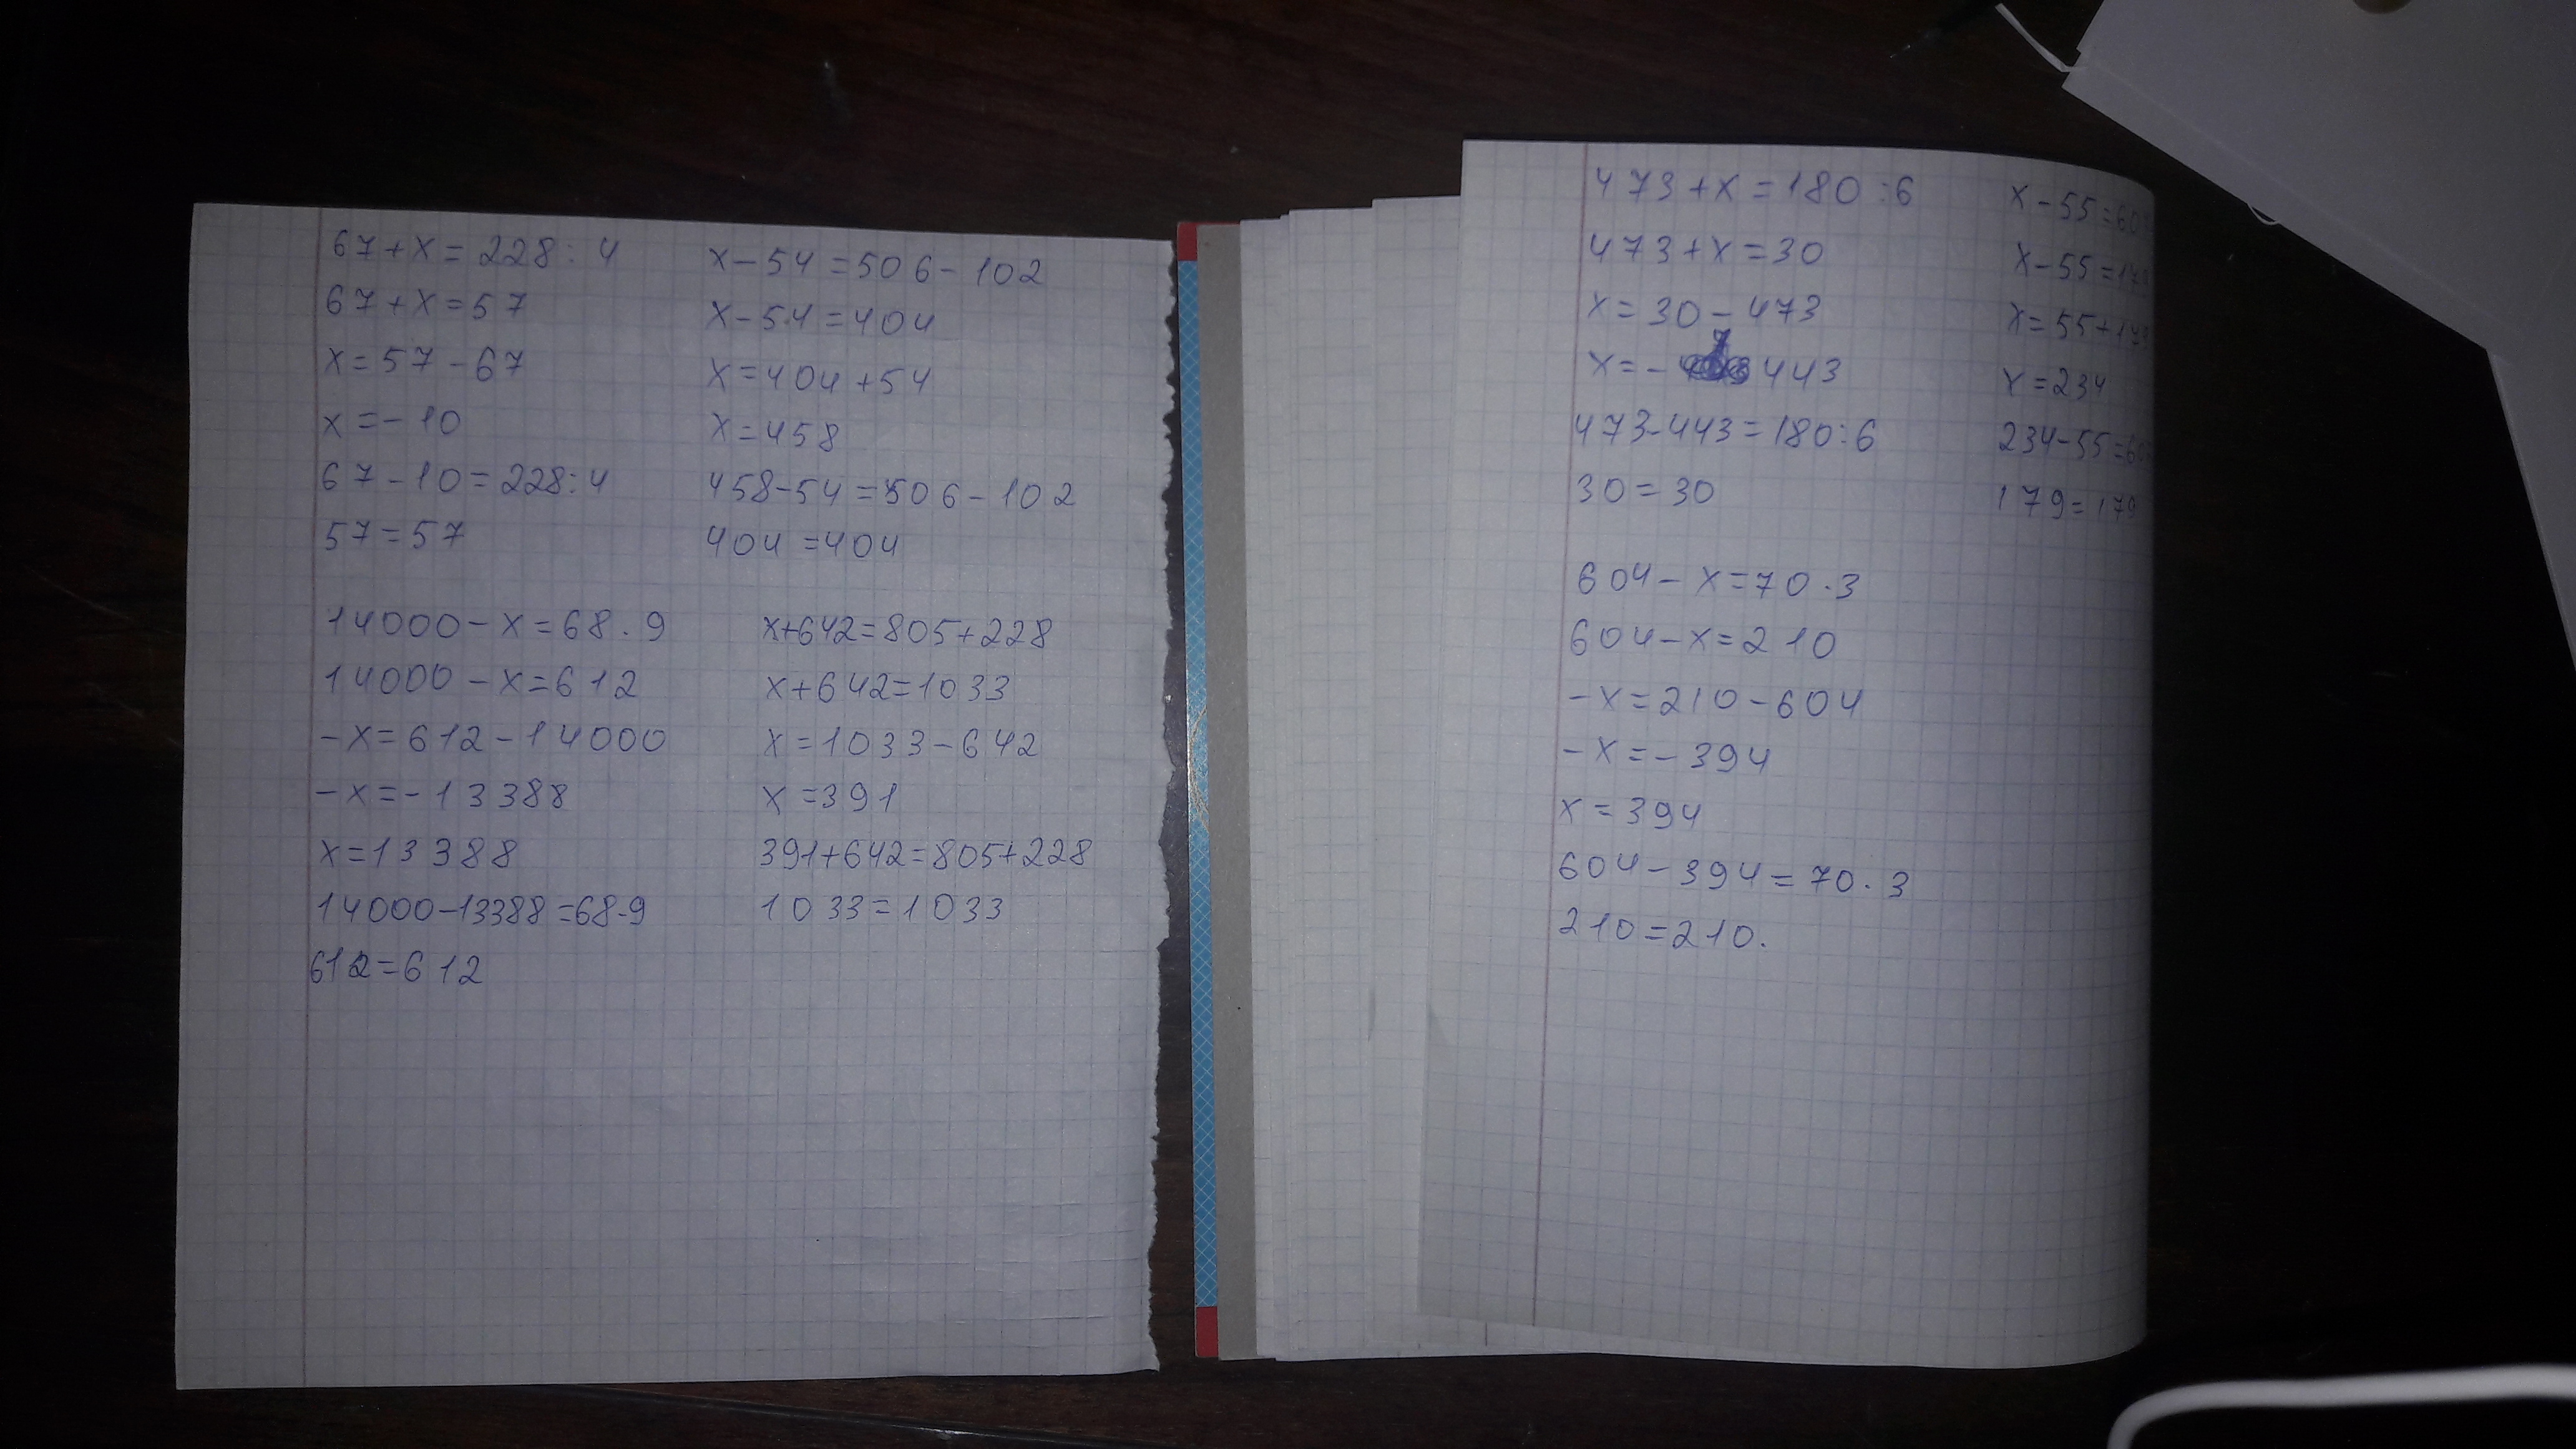 67+x=228:4
67+x=57
x=57-67
x=-10
67-10=228:4
57=57
x-54=506-102
x-54=404
x=404+54
x=458
458-54=506-102
404=404
14000-x=68.9
14000-x=612
-x=612-14000
-x=-13388
x=13388
14000-13388=68.9
612=612
x+642=805+228
x+642=1033
x=1033-642
x=391
391+642=805+228
1033=1033
473+x=180:6
473+x=30
x=30-473
x=-443
473-443=180:6
30=30
x-55=60
x-55=179
x=55+179
x=234
234-55=60
179=179
604-x=70.3
604-x=210
-x=210-604
-x=-394
x=394
604-394=70.3
210=210.